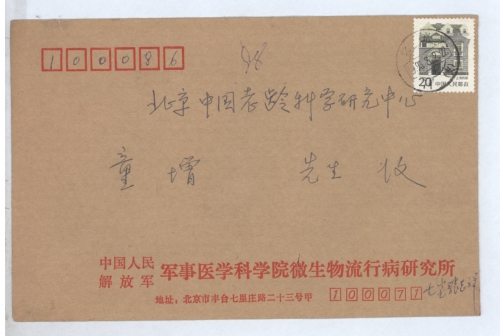 100086
98
20
中国人民邮政
北京中国老龄科学研究中心
童增 先生 收
中国人民解放军 军事医学科学院微生物流行病研究所
地址:北京市丰台七里庄路二十三号甲 100071